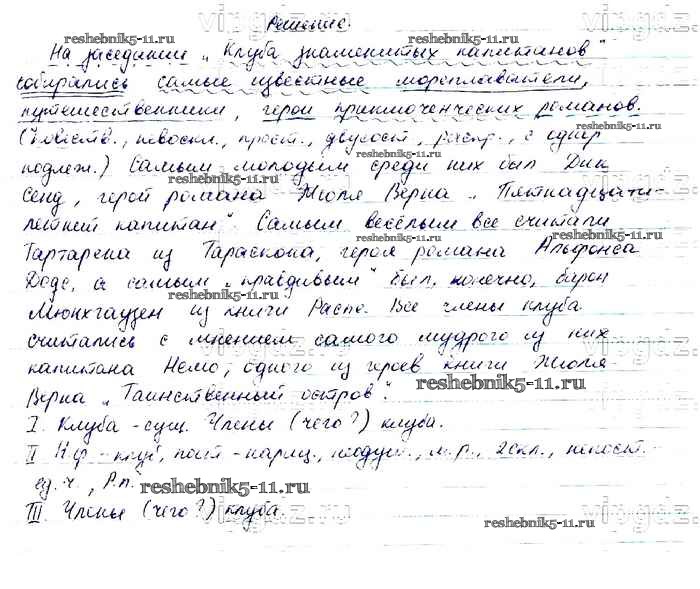 Решение.
На заседании „Клуба знаменитых капитанов"
собирались самые известные мореплаватели,
путешественники, герои приключенческих романов.
(Повеств., невоскл., прост., двусост., распр., с однор
подлеж.) Самым молодым среди них был Дик
Сенд, герой романа Жюля Верна „Пятнадцати-
летний капитан". Самым весёлым все считали
Тартарена из Тараскона, героя романа Альфонса
Доде, а самым „правдивым" был, конечно, барон
Мюнхгаузен из книги Распе. Все члены клуба
считались с мнением самого мудрого из них
капитана Немо, одного из героев книги Жюля
Верна „Таинственный остров".
I. Клуба - сущ. Члены (чего?) клуба.
II Н.ф - клуб, пост - нариц., неодуш., м.р., 2 скл., непост. -
ед.ч., Р.п.
III. Члены (чего?) клуба.
reshebnik5-11.ru
reshebnik5-11.ru
reshebnik5-11.ru
reshebnik5-11.ru
reshebnik5-11.ru
reshebnik5-11.ru
reshebnik5-11.ru
reshebnik5-11.ru
reshebnik5-11.ru
reshebnik5-11.ru